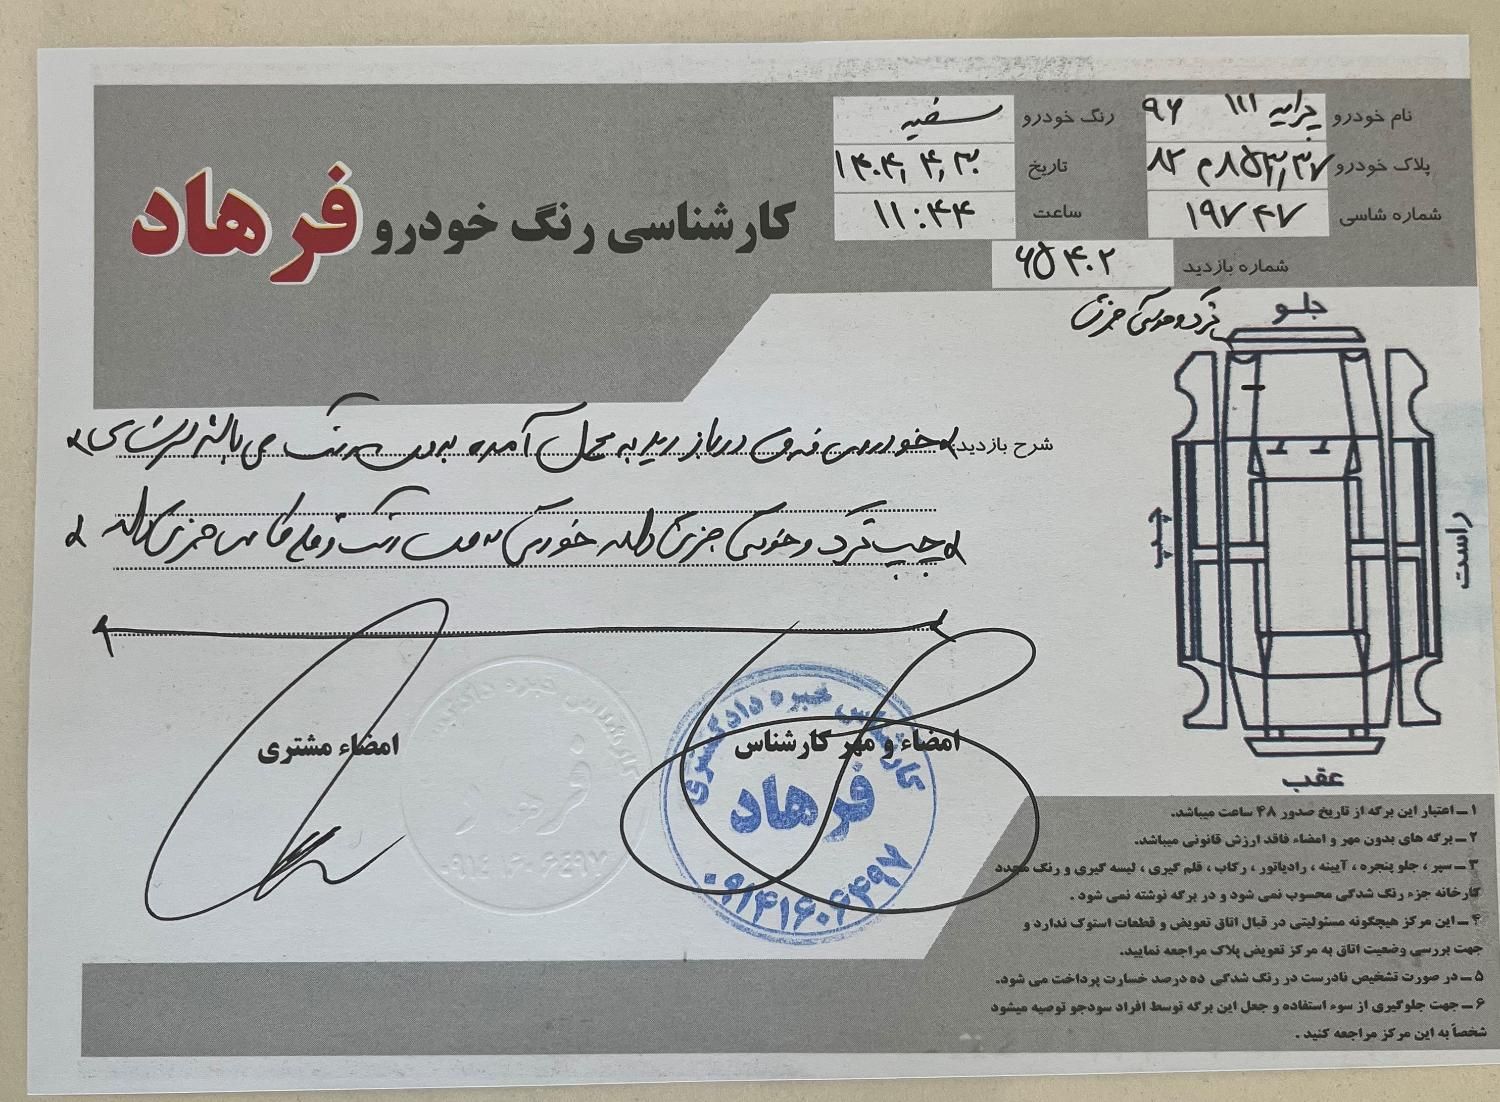 نام خودرو پراید ۱۱۱ ۹۶
رنگ خودرو سفید
پلاک خودرو
تاریخ ۱۴۰۴,۴,۳۰
شماره شاسی ۱۹۷۴۷
ساعت ۱۱:۴۴
شماره بازدید ۶۵۴۰۲
کارشناسی رنگ خودرو فرهاد
ترک و خوردگی جزئی
جلو
شرح بازدید: خودروی فوق در بازدید به عمل آمده بدون رنگ می باشد
چپ ترک و خوردگی جزئی دارد
چپ
راست
عقب
امضاء و مهر کارشناس
امضاء مشتری
کارشناس خبره دادگستری
فرهاد
۰۹۱۴۱۶۰۶۴۹۷
کارشناس خبره دادگستری
فرهاد
۰۹۱۴۱۶۰۶۴۹۷
۱ ـ اعتبار این برگه از تاریخ صدور ۴۸ ساعت میباشد.
۲ ـ برگه های بدون مهر و امضاء فاقد ارزش قانونی میباشد.
۳ ـ سپر ، جلو پنجره ، آیینه ، رادیاتور ، رکاب ، قلم گیری ، لیسه گیری و رنگ مجدد
کارخانه جزء رنگ شدگی محسوب نمی شود و در برگه نوشته نمی شود .
۴ ـ این مرکز هیچگونه مسئولیتی در قبال اتاق تعویض و قطعات استوک ندارد و
جهت بررسی وضعیت اتاق به مرکز تعویض پلاک مراجعه نمایید.
۵ ـ در صورت تشخیص نادرست در رنگ شدگی ده درصد خسارت پرداخت می شود.
۶ ـ جهت جلوگیری از سوء استفاده و جعل این برگه توسط افراد سودجو توصیه میشود
شخصاً به این مرکز مراجعه کنید .